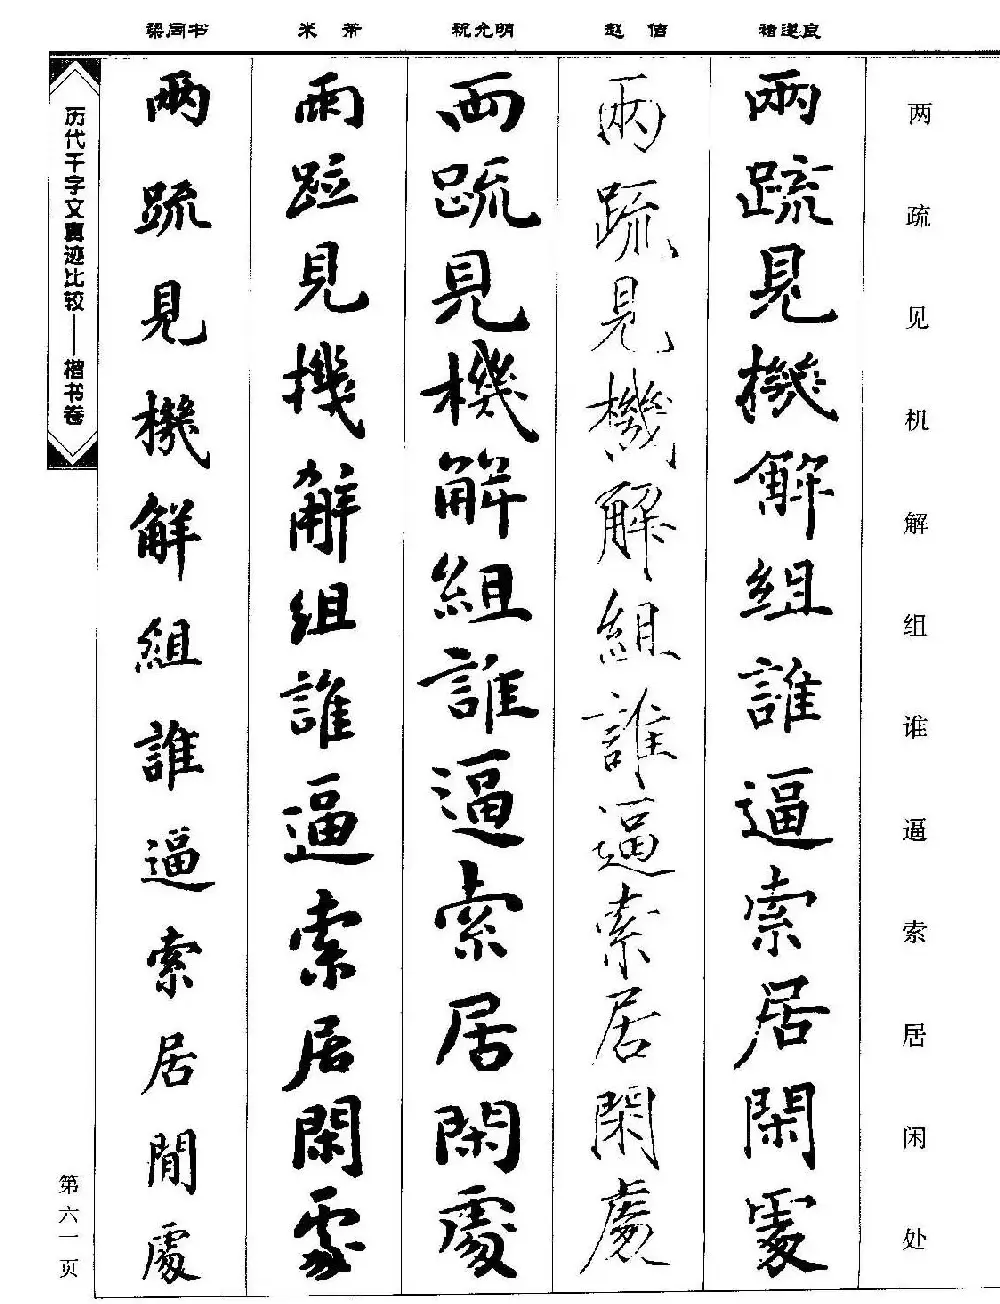 梁同书 米芾 祝允明 赵佶 褚遂良
两疏见机解组谁逼索居闲处
兩疏見機解組誰逼索居閑處
兩疏見機解組誰逼索居閑處
兩疏見機解組誰逼索居閑處
兩疏見機解組誰逼索居閑處
兩疏見機解組誰逼索居閒處
历代千字文真迹比较——楷书卷
第六一页